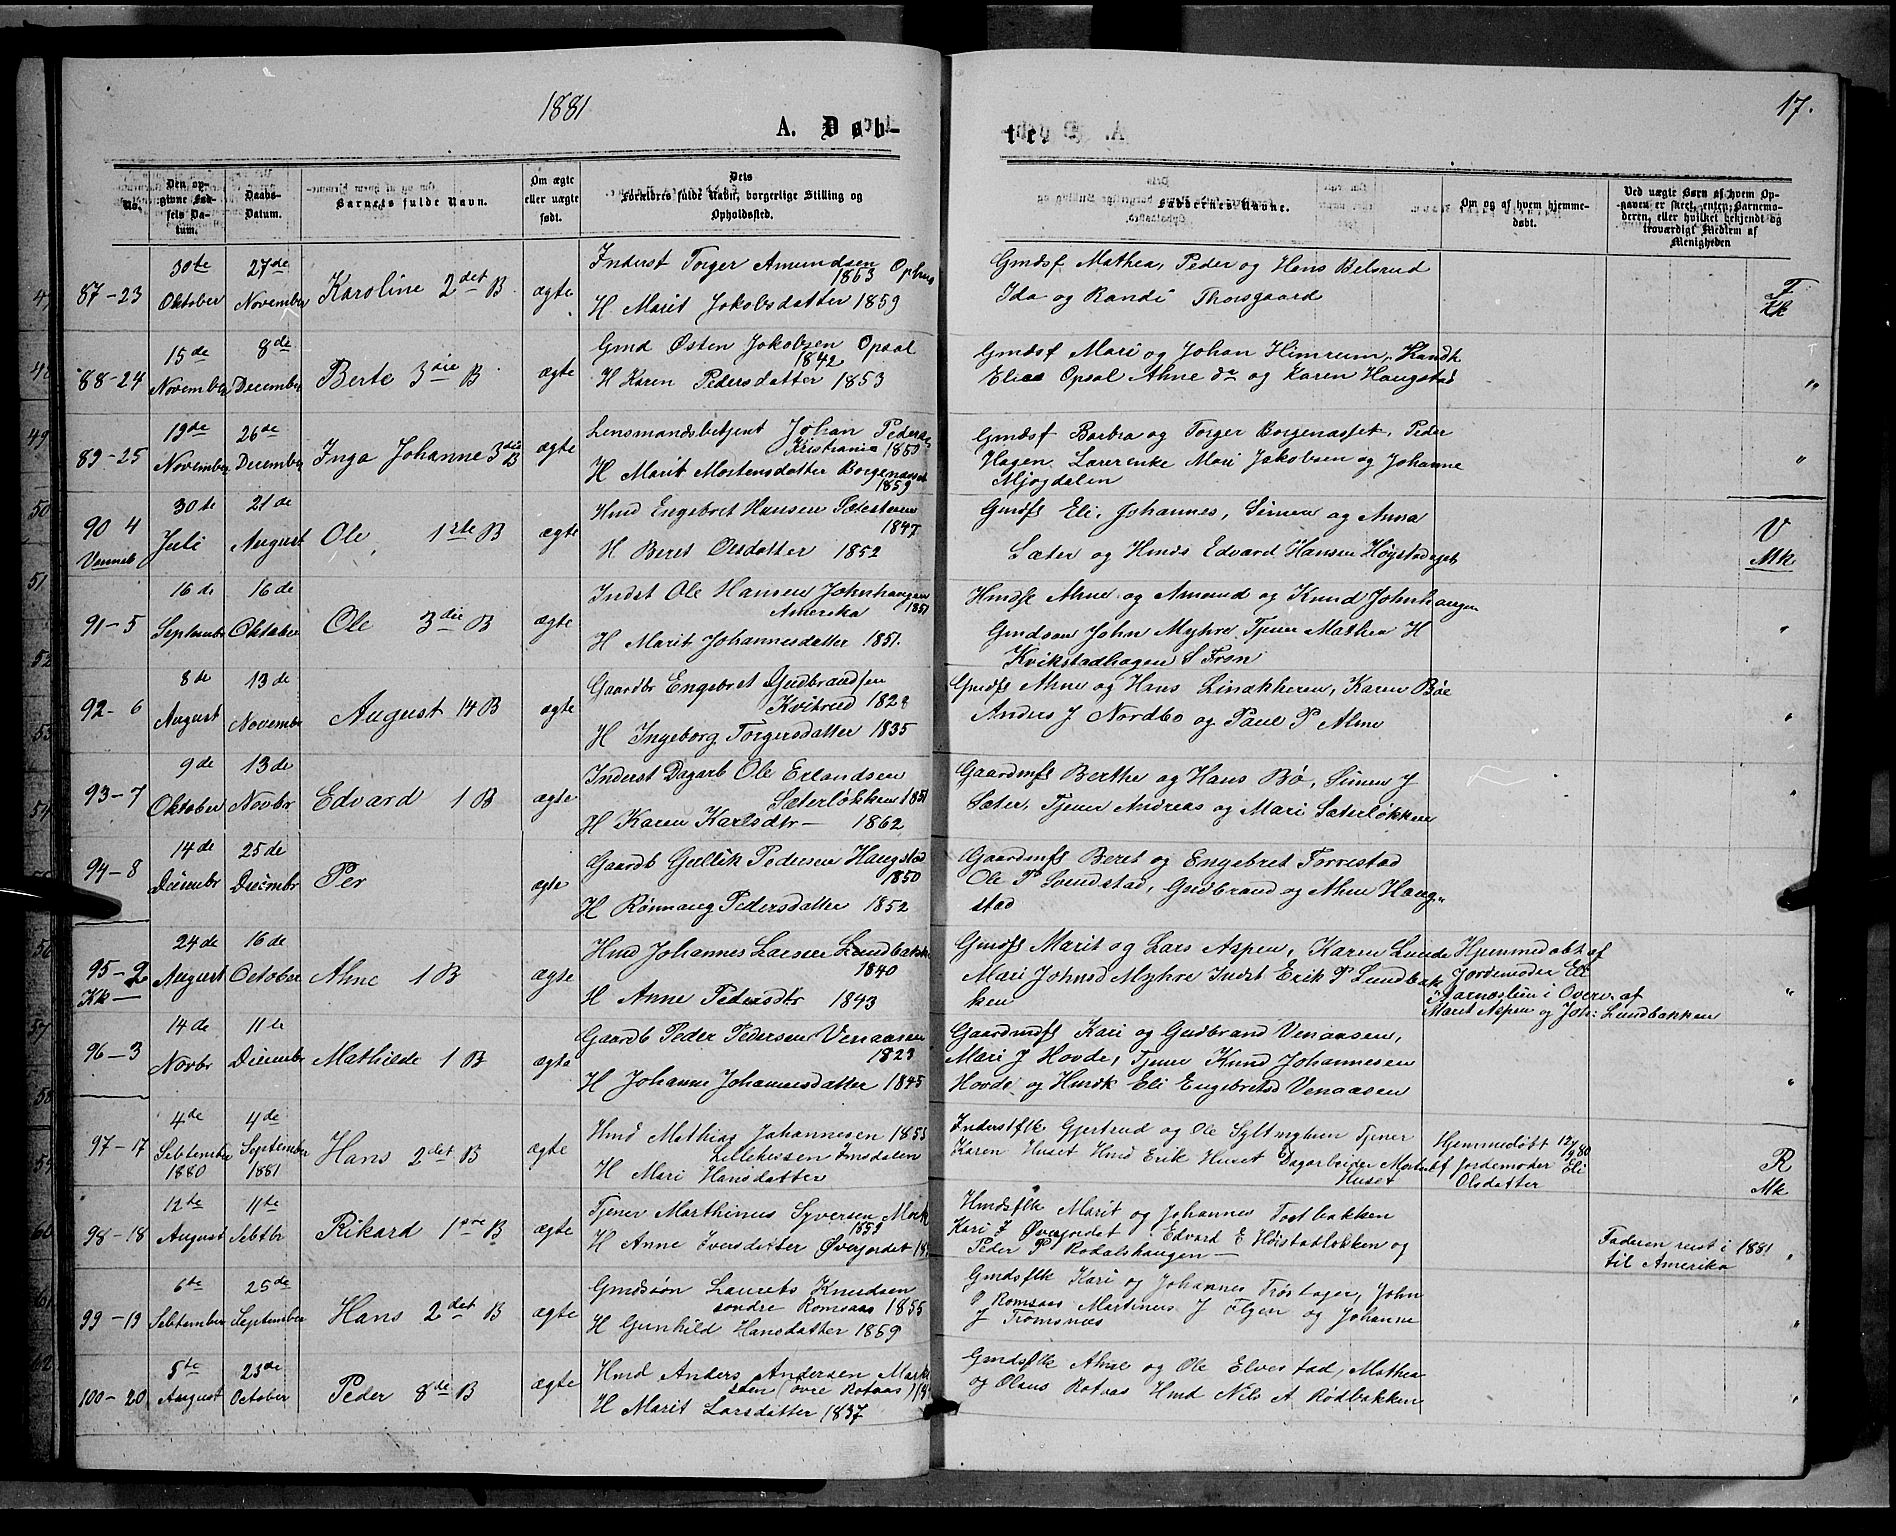 1881
17.
A. Døb-
te.
No.
Den op-
givne Fød-
sels Da-
tum.
Daabs-
Datum.
Barnets fulde Navn.
Om ægte
eller uægte
født.
Dets
Forældres fulde Navn, borgerlige Stilling og
Opholdssted.
Faddernes Navne.
Om og af hvem hjemme-
døbt.
Ved uægte Børn af hvem Op-
gaven er skeet, enten Barnemo-
deren, eller hvilket bekjendt og
troværdigt Medlem af
Menigheden
87-23
30te
Oktober
27de
November
Karoline 2det B
ægte
Inderst Torger Amundsen
1853 Ophus
H Marit Jakobsdatter 1859
Gmdsf Mathea, Peder og Hans Belsrud
Ida og Randi Thorsgaard
F
Kk
88-24
15de
November
8de
December
Berte 3die B
ægte
Gmd Østen Jakobsen Opsal
1842
H Karen Pedersdatter 1853
Gmdsf Mari og Johan Himrum,
Opsal Ahne do og Karen Haugstad
"
89-25
19de
November
26de
December
Inga Johanne 3die B
ægte
Lensmandsbetjent Johan Pedersen
Kristiania 1850
H Marit Mortensdatter Borgenæsset
1859
Gmdsf Barbra og Torger Borgenæsset, Peder
Hagen Lærerenke Mari Jakobsen og Johanne
Mjogdalen
"
90 4
Venneb
30te
Juli
21de
August
Ole 1ste B
ægte
Hmd Engebret Hansen Sætestuen
1847
H Beret Olsdatter 1852
Gmdfs Eli, Johannes, Simen og Anna
Sæter og Hmds Edvard Hansen Høystadeget
V
Mk
91-5
16de
September
16de
Oktober
Ole 3die B
ægte
Indst Ole Hansen Johnhaugen
Amerika 1851
H Marit Johannesdatter 1851.
Hmdsf Ahne og Amund og Knud Johnhaugen
Gmdson John Myhre Tjener Mathea H
Kvikstadhagen S Fron
"
92-6
8de
August
13de
November
August 14 B
ægte
Gaardbr Engebret Gudbrandsen
Kvitrud 1828
H Ingeborg Torgersdatter 1835
Gmdfs Ahne og Hans Linakkeren, Karen Bøe
Anders J Nordbo og Paul P Alme
"
93-7
9de
Oktober
13de
Novbr
Edvard 1 B
ægte
Inderst Dagarb Ole Erlandsen
Sæterløkken 1851
H Karen Karlsdtr - 1862
Gaardmfs Berthe og Hans Bø, Simen J
Sæter, Tjener Andreas og Mari Sæterløkken
"
94-8
14de
Decembr
25de
Decembr
Per
ægte
Gaardb Gullik Pedersen Haugstad
1850
H Rønnaug Pedersdatter 1852
Gaardmfs Beret og Engebret Torrestad
Ole P Svendstad, Gudbrand og Ahne Haug-
stad
95-2
Kk-
24de
August
16de
October
Ahne 1 B
ægte
Hmd Johannes Larsen Lundbakken
1840
H Anne Pedersdtr 1843
Gmdfs Marit og Lars Aspen, Karen Lunde
Mari Johnsd Myhre Indst Erik P Lundbak-
ken
Hjemmedøbt af
Jordemoder Eli
Aarnæslien i Overv. af
Marit Aspen og Joh: Lundbakken
"
96-3
14de
Novbr
11te
Decembr
Mathilde 1 B
ægte
Gaardb Peder Pedersen Venaasen
1823
H Johanne Johannesdatter 1845
Gaardmdfs Kari og Gudbrand Venaasen,
Mari J Hovde, Tjener Knud Johannesen
Hovde og Hmdk Eli Engebretsd Venaasen
"
97-17
4de
Sebtember
1880
4de
September
1881
Hans 2det B
ægte
Hmd Mathias Johannesen 1853
Lillehessen Imsdalen
H Mari Hansdatter
Inderstflk Gjertrud og Ole Sylthaugen Tjener
Karen Huset Hmd Erik Huset Dagarbeider Morten
Huset
Hjemmedøbt 12/9 80
af Jordemoder Eli
Olsdatter
R
Mk
98-18
12te
August
11te
Sebtbr
Rikard 1ste B
ægte
Tjener Marthinus Syversen Moen
1859
H Anne Iversdatter Øverjordet
Hmdsflk Marit og Johannes Tostbakken
Kari J Øverjordet Edvard E Høistadløkken og
Peder P Rodalshaugen -
Faderen reist i 1881
til Amerika
"
99-19
6te
Sebtember
25de
September
Hans 2det B
ægte
Gmdsøn Laurets Knudsen
søndre Romsaas 1855
H Gunhild Hansdatter 1859
Gmdsflk Kari og Johannes Trøstager, John
P Romsaas Martinus J Elgen og Johanne
J Tromsnæs
"
100-20
5te
August
23de
October
Peder 8de B
ægte
Hmd Anders Andersen
(Øvre Rotvas)
H Marit Larsdatter 1837
Gmdsflk Ahne og Ole Elvestad, Mathea
og Olaus Rotvas Hmd Nils A Rødbakken
"